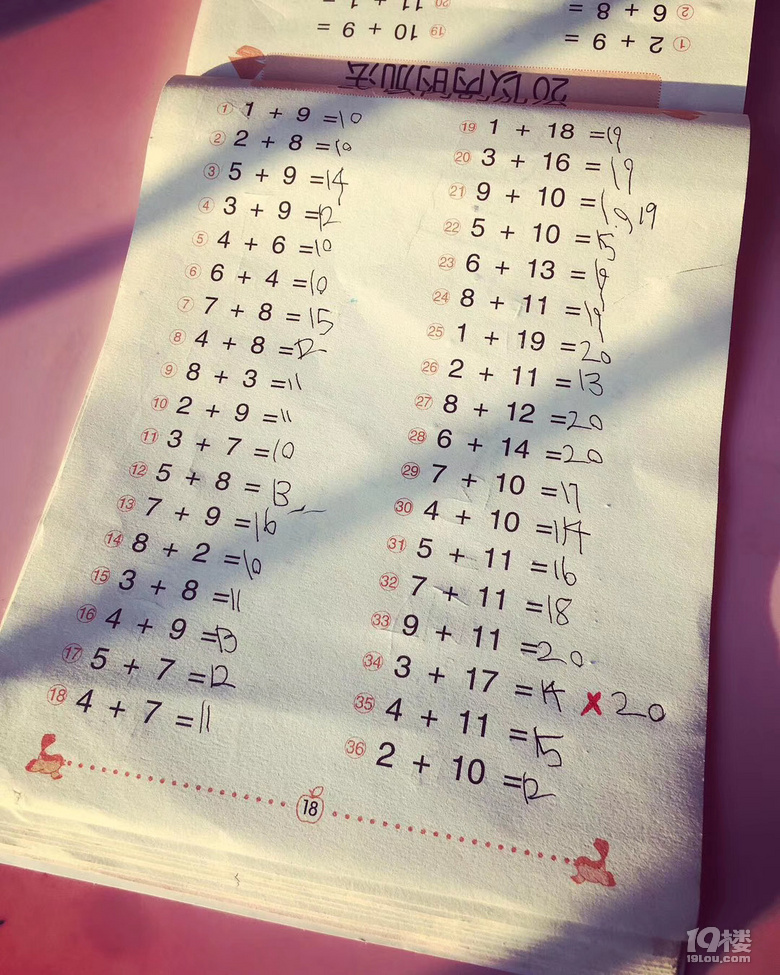 20以内的加法
① 2 + 9 =
② 6 + 8 =
⑲ 10 + 9 =
① 1 + 9 =10
② 2 + 8 =10
③ 5 + 9 =14
④ 3 + 9 =12
⑤ 4 + 6 =10
⑥ 6 + 4 =10
⑦ 7 + 8 =15
⑧ 4 + 8 =12
⑨ 8 + 3 =11
⑩ 2 + 9 =11
⑪ 3 + 7 =10
⑫ 5 + 8 =13
⑬ 7 + 9 =16
⑭ 8 + 2 =10
⑮ 3 + 8 =11
⑯ 4 + 9 =13
⑰ 5 + 7 =12
⑱ 4 + 7 =11
⑲ 1 + 18 =19
⑳ 3 + 16 =19
㉑ 9 + 10 =19 19
㉒ 5 + 10 =15
㉓ 6 + 13 =19
㉔ 8 + 11 =19
㉕ 1 + 19 =20
㉖ 2 + 11 =13
㉗ 8 + 12 =20
㉘ 6 + 14 =20
㉙ 7 + 10 =17
㉚ 4 + 10 =14
㉛ 5 + 11 =16
㉜ 7 + 11 =18
㉝ 9 + 11 =20
㉞ 3 + 17 =14 ✗ 20
㉟ 4 + 11 =15
㊱ 2 + 10 =12
18
19楼
19lou.com